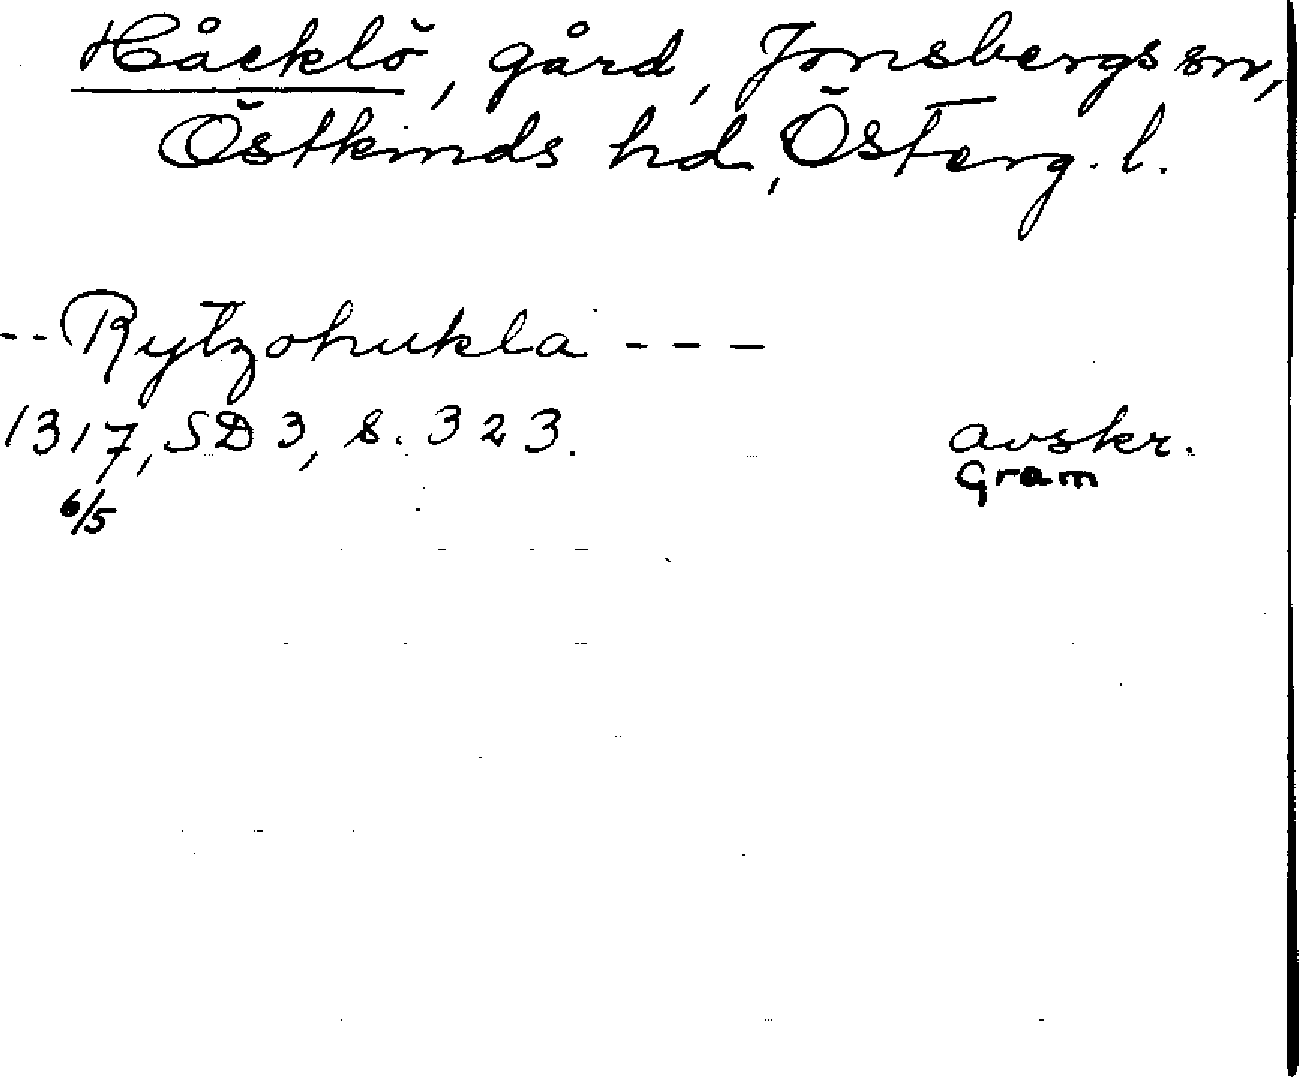 Håcklö, gård, Jonsbergs sn,
Östkinds hd, Österg. l.
-- Rytzohukla ---
1317, SD 3, s. 323. avskr.
6/5 Gram